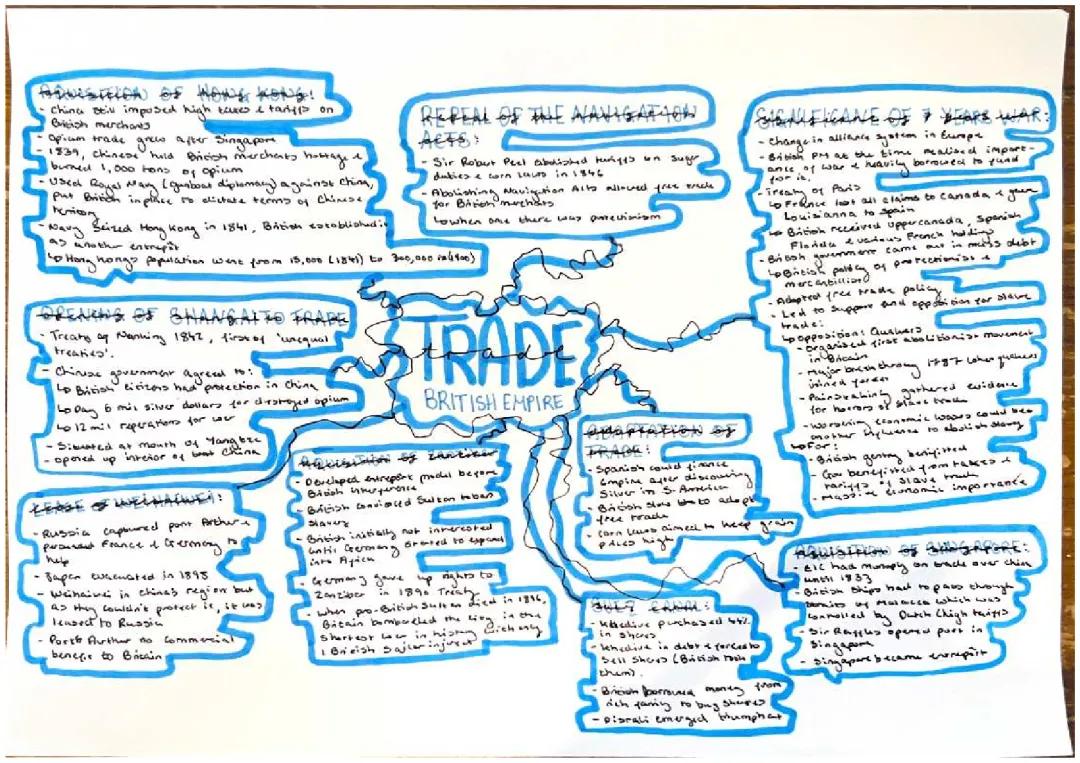 AQUISITION OF HONG KONG:
- China still imposed high taxes & tariffs on
British merchants
- Opium trade grew after Singapore
- 1839, Chinese held British merchants hostage &
burned 1,000 tons of opium
- Used Royal Navy (gunboat diplomacy) against China,
put British in place to dictate terms of Chinese
territory
- Navy seized Hong Kong in 1841, British established it
as another entrepit
↳ Hong Kongs population went from 15,000 (1841) to 300,000 in (1900)
REPEAL OF THE NAVIGATION
ACTS:
- Sir Robert Peel abolished tariffs on sugar
duties & corn laws in 1846
- Abolishing Navigation Acts allowed free trade
for British merchants
↳ when once there was protectionism
SIGNIFICANE OF 7 YEARS WAR:
- Change in alliance system in Europe
- British PM at the time realised import-
ance of war & heavily borrowed to fund
for it.
- Treaty of Paris
↳ France lost all claims to Canada & gave
Louisianna to Spain
↳ British received upper canada, Spanish
Florida & various French holding
- British government came out in mass debt
↳ British policy of protectionist &
mercantilism
- Adopted free trade policy
- Led to support and opposition for slave
trade:
↳ opposition: Quakers
- organised first abolitionist movement
in Britain
- Major breakthrough 1787 when quakers
joined forces
- Painstaking gathered evidence
for horrors of slave trade
- Worsening economic issues could be
another influence to abolish slavery
↳ For:
- British gentry benifitted
- Gov benefitted from taxes &
tariffs of slave trade
- Massive economic importance
OPENING OF SHANGAI TO TRADE
- Treaty of Nanking 1842, first of 'unequal
treaties'.
- Chinese government agreed to:
↳ British citizens had protection in China
↳ Pay 6 mil silver dollars for destroyed opium
↳ 12 mil reperations for war
- Situated at mouth of Yangtze
- opened up interior of China
TRADE
trade
BRITISH EMPIRE
LEASE OF WEIHAIWEI:
- Russia captured port Arthur &
persuaded France & Germany to
help
- Japan evacuated in 1895
- Weihaiwei in china's region but
as they couldn't protect it, it was
leased to Russia
- Port Arthur no commercial
benefit to Britain
AQUISITION OF ZANZIBAR
- Developed entreport model before
British interference
- British convinced Sultan to ban
slavery
- British initially not interested
until Germany started to expand
into Africa
- Germany gave up rights to
Zanzibar in 1890 Treaty
- When pro-British Sultan died in 1896,
Britain bombarded the city in the
shortest war in history with only
1 British sailor injured
ADAPTATION OF
TRADE:
- Spanish could finance
empire after discovering
silver in S. America
- British slow to adopt
free trade
- Corn laws aimed to keep grain
prices high
SUEZ CANAL:
- Khedive purchased 44%
in shares
- Khedive in debt & forced to
sell shares (British took
them).
- British borrowed money from
rich family to buy shares
- Disraeli emerged triumphant
AQUISITION OF SINGAPORE:
- EIC had monoply on trade over china
until 1833
- British ships had to pass through
straits of Malacca which was
controlled by Dutch (high tariffs
- Sir Raffles opened port in
Singapore
- Singapore became entrepit